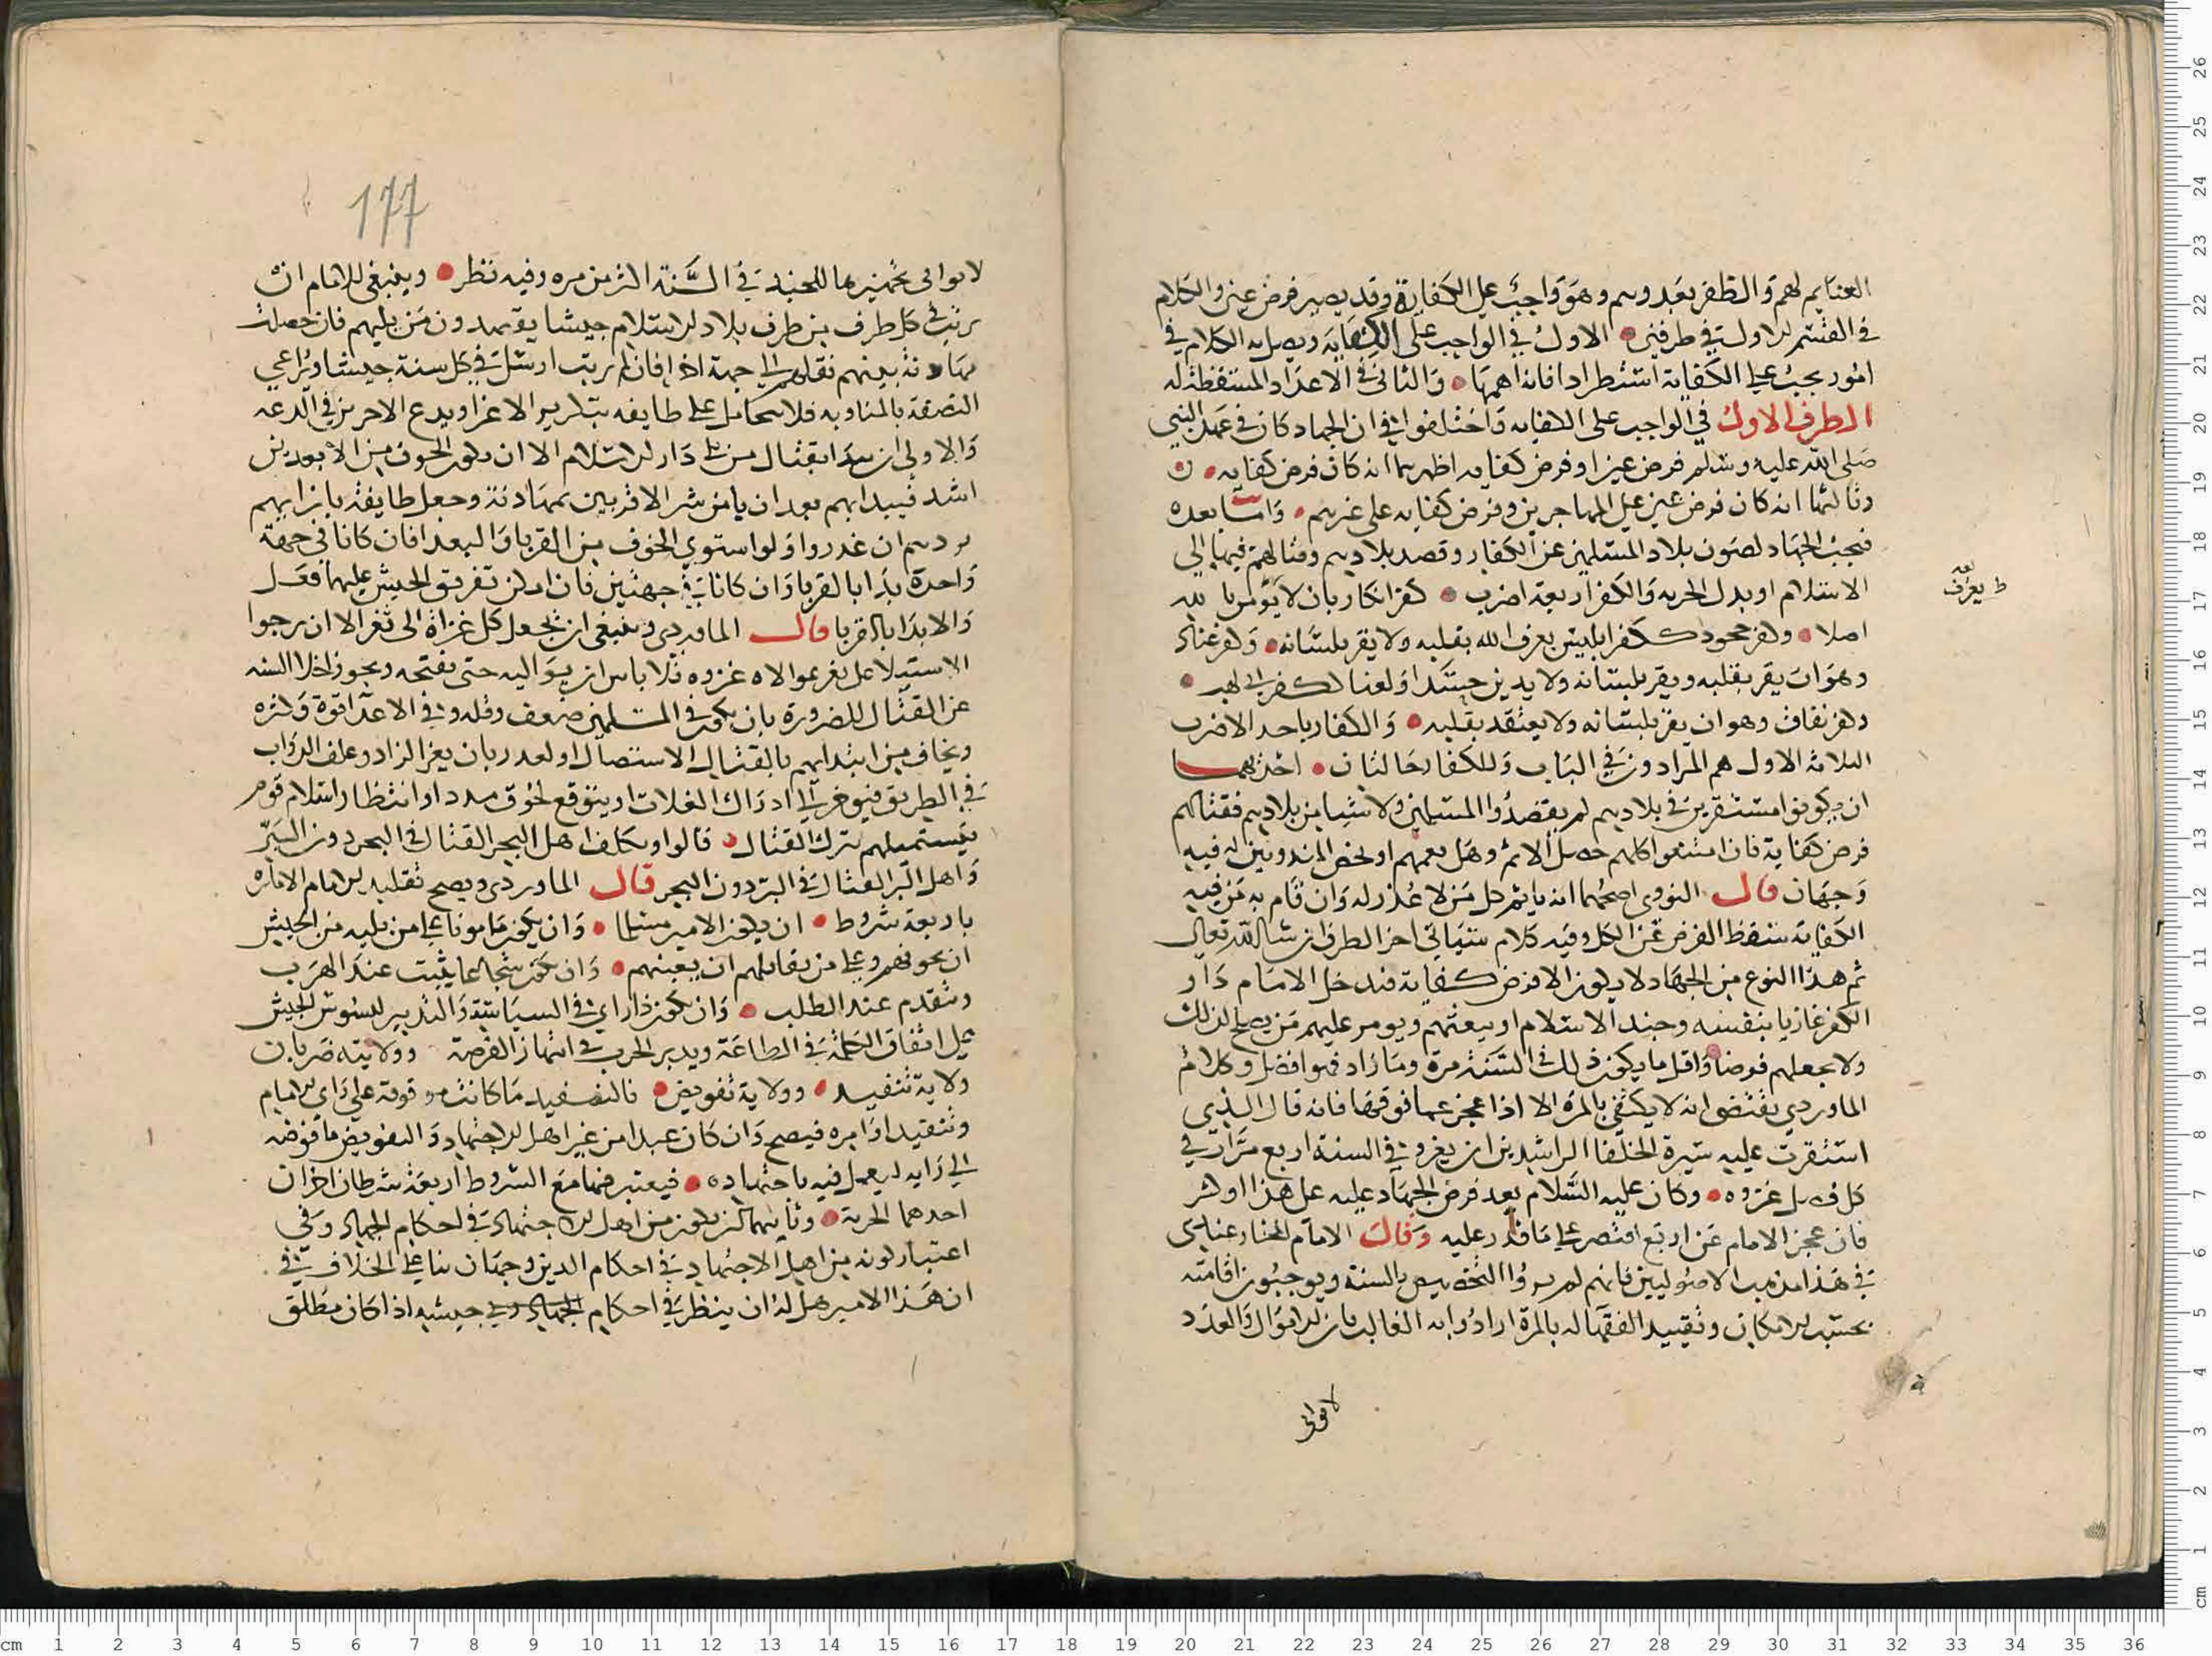 الغنايم لهم والظفر بعدوهم وهو واجب على الكفاية وقد يصير فرض عين والكلام
في القسم الاول في طرفين الاول في الواجب على الكفاية ويصل به الكلام في
امور يجب على الكفاية استطرادا فانه اهمها والثاني في الاعذار المسقطة له
الطرف الاول في الواجب على الكفايه واختلفوا في ان الجهاد كان في عهد النبي
صلى الله عليه وسلم فرض عين او فرض كفايه اظهرهما انه كان فرض كفايه
وثالثها انه كان فرض عين على المهاجرين وفرض كفايه على غيرهم واما بعده
فيجب الجهاد لصون بلاد المسلمين عن الكفار وقصد بلادهم وقتالهم فيها الى
الاسلام او بدل الجزيه والكفر اربعة اضرب كفر انكار بان لا يؤمن بالله
ط يعرف
اصلا وكفر جحود ككفر ابليس يعرف الله بقلبه ولا يقر بلسانه وكفر عناد
وهو ان يقر بقلبه ويقر بلسانه ولا يدين حسدا ولعنا لكفر ابي لهب
وكفر نفاق وهو ان يقر بلسانه ولا يعتقد بقلبه والكفار باحد الاضرب
الثلاثة الاول هم المرادون في الباب وللكفار حالتان احدهما
ان يكونوا مستقرين في بلادهم لم يقصدوا المسلمين ولا شيا من بلادهم فقتالهم
فرض كفاية فان امتنعوا كلهم حصل الاثم وهل يعمهم او يختص المندوبين له فيه
وجهان قال النووي اصحهما انه ياثم كل من لا عذر له وان قام به من فيه
الكفاية سقط الفرض عن الكل وفيه كلام سياتي اخر الطرف ان شا الله تعالى
ثم هذا النوع من الجهاد لا يكون الا فرض كفاية فيدخل الامام دار
الكفر غازيا بنفسه وجند الاسلام او يبعثهم ويومر عليهم من يصلح لذلك
ولا يجعلهم فوضا واقل ما يكون ذلك في السنة مرة وما زاد فهو افضل وكلام
الماوردي يقتضي انه لا يكتفي بالمرة الا اذا عجز عما فوقها فانه قال الذي
استقرت عليه سيرة الخلفا الراشدين ان يغزو في السنة اربع مرات في
كل فصل غزوه وكان عليه السلام بعد فرض الجهاد عليه على هذا او اكثر
فان عجز الامام عن اربع اقتصر على ما قدر عليه وقال الامام المختار عنادى
في هذا مذهب الاصوليين فانهم لم يروا التخصيص بالسنة ويوجبون اقامته
بحسب الامكان وتقييد الفقها له بالمرة ارادوا به الغالب فان الاموال والعدد
لا تواتي
177
لا تواتى تجهيزها للجند في السنة اكثر من مره وفيه نظر وينبغي للامام ان
يرتب في كل طرف من طرف بلاد الاسلام جيشا يقصدون من يليهم فان حصلت
مهادنة بينهم نقلهم الى جهة اخرى فان لم يرتب ارسل في كل سنة جيشا ويراعي
النصفة بالمناوبه فلا يتحامل على طايفه بتكرير الاغزا ويدع الاخرين في الدعه
والاولى ان يبدا بقتال من يلي دار الاسلام الا ان يكون الخوف من الابعدين
اشد فيبدا بهم بعد ان يامن شر الاقربين بمهادنة وجعل طايفة بازايهم
يردهم ان غدروا ولو استوى الخوف من القربا والبعدا فان كانا في جهة
واحدة بدا بالقربا وان كانا في جهتين فان امكن تفريق الجيش عليهما فعل
والا بدا بالاقربا قال الماوردي وينبغي ان يجعل كل غزاة الى ثغر الا ان يرجوا
الاستيلا على ثغر موالاه غزوه فلا باس ان يوالیه حتى يفتحه ويجوز اخلا السنه
عن القتال للضرورة بان يكون في المسلمين ضعف وقله وفي الاعدا قوة وكثره
ويخاف من ابتدايهم بالقتال الاستئصال او لعذر بان يعز الزاد وعلف الدواب
في الطريق فيوخر الى ادراك الغلات او يتوقع لحوق مدد او انتظار اسلام قوم
يستميلهم بترك القتال قالوا ويكلف اهل البحر القتال في البحر دون البر
واهل البر القتال في البر دون البحر قال الماوردي ويصح تقليد الامام الاماره
باربعة شروط ان يكون الامير مسلما وان يكون مامونا على من يليه من الجيش
ان يخونهم وعلى من يقاتلهم ان يعينهم وان يكون شجاعا يثبت عند الهرب
ويتقدم عند الطلب وان يكون ذا راي في السياسة والتدبير ليسوس الجيش
على اتفاق الكلمة في الطاعة ويدبر الحرب في انتهاز الفرصة وولايته ضربان
ولاية تنفيذ وولاية تفويض فالتنفيذ ما كانت موقوفة على راى الامام
وتنفيذ اوامره فيصح وان كان عبدا من غير اهل الاجتهاد والتفويض ما فوضه
الى رايه ليعمل فيه باجتهاده فيعتبر فيها مع الشروط اربعة شرطان اخران
احدهما الحرية وثانيهما ان يكون من اهل الاجتهاد في احكام الجهاد وفي
اعتبار كونه من اهل الاجتهاد في احكام الدين وجهان بنا على الخلاف في
ان هذا الامير هل له ان ينظر في احكام الجهاد وفي جيشه اذا كان مطلق